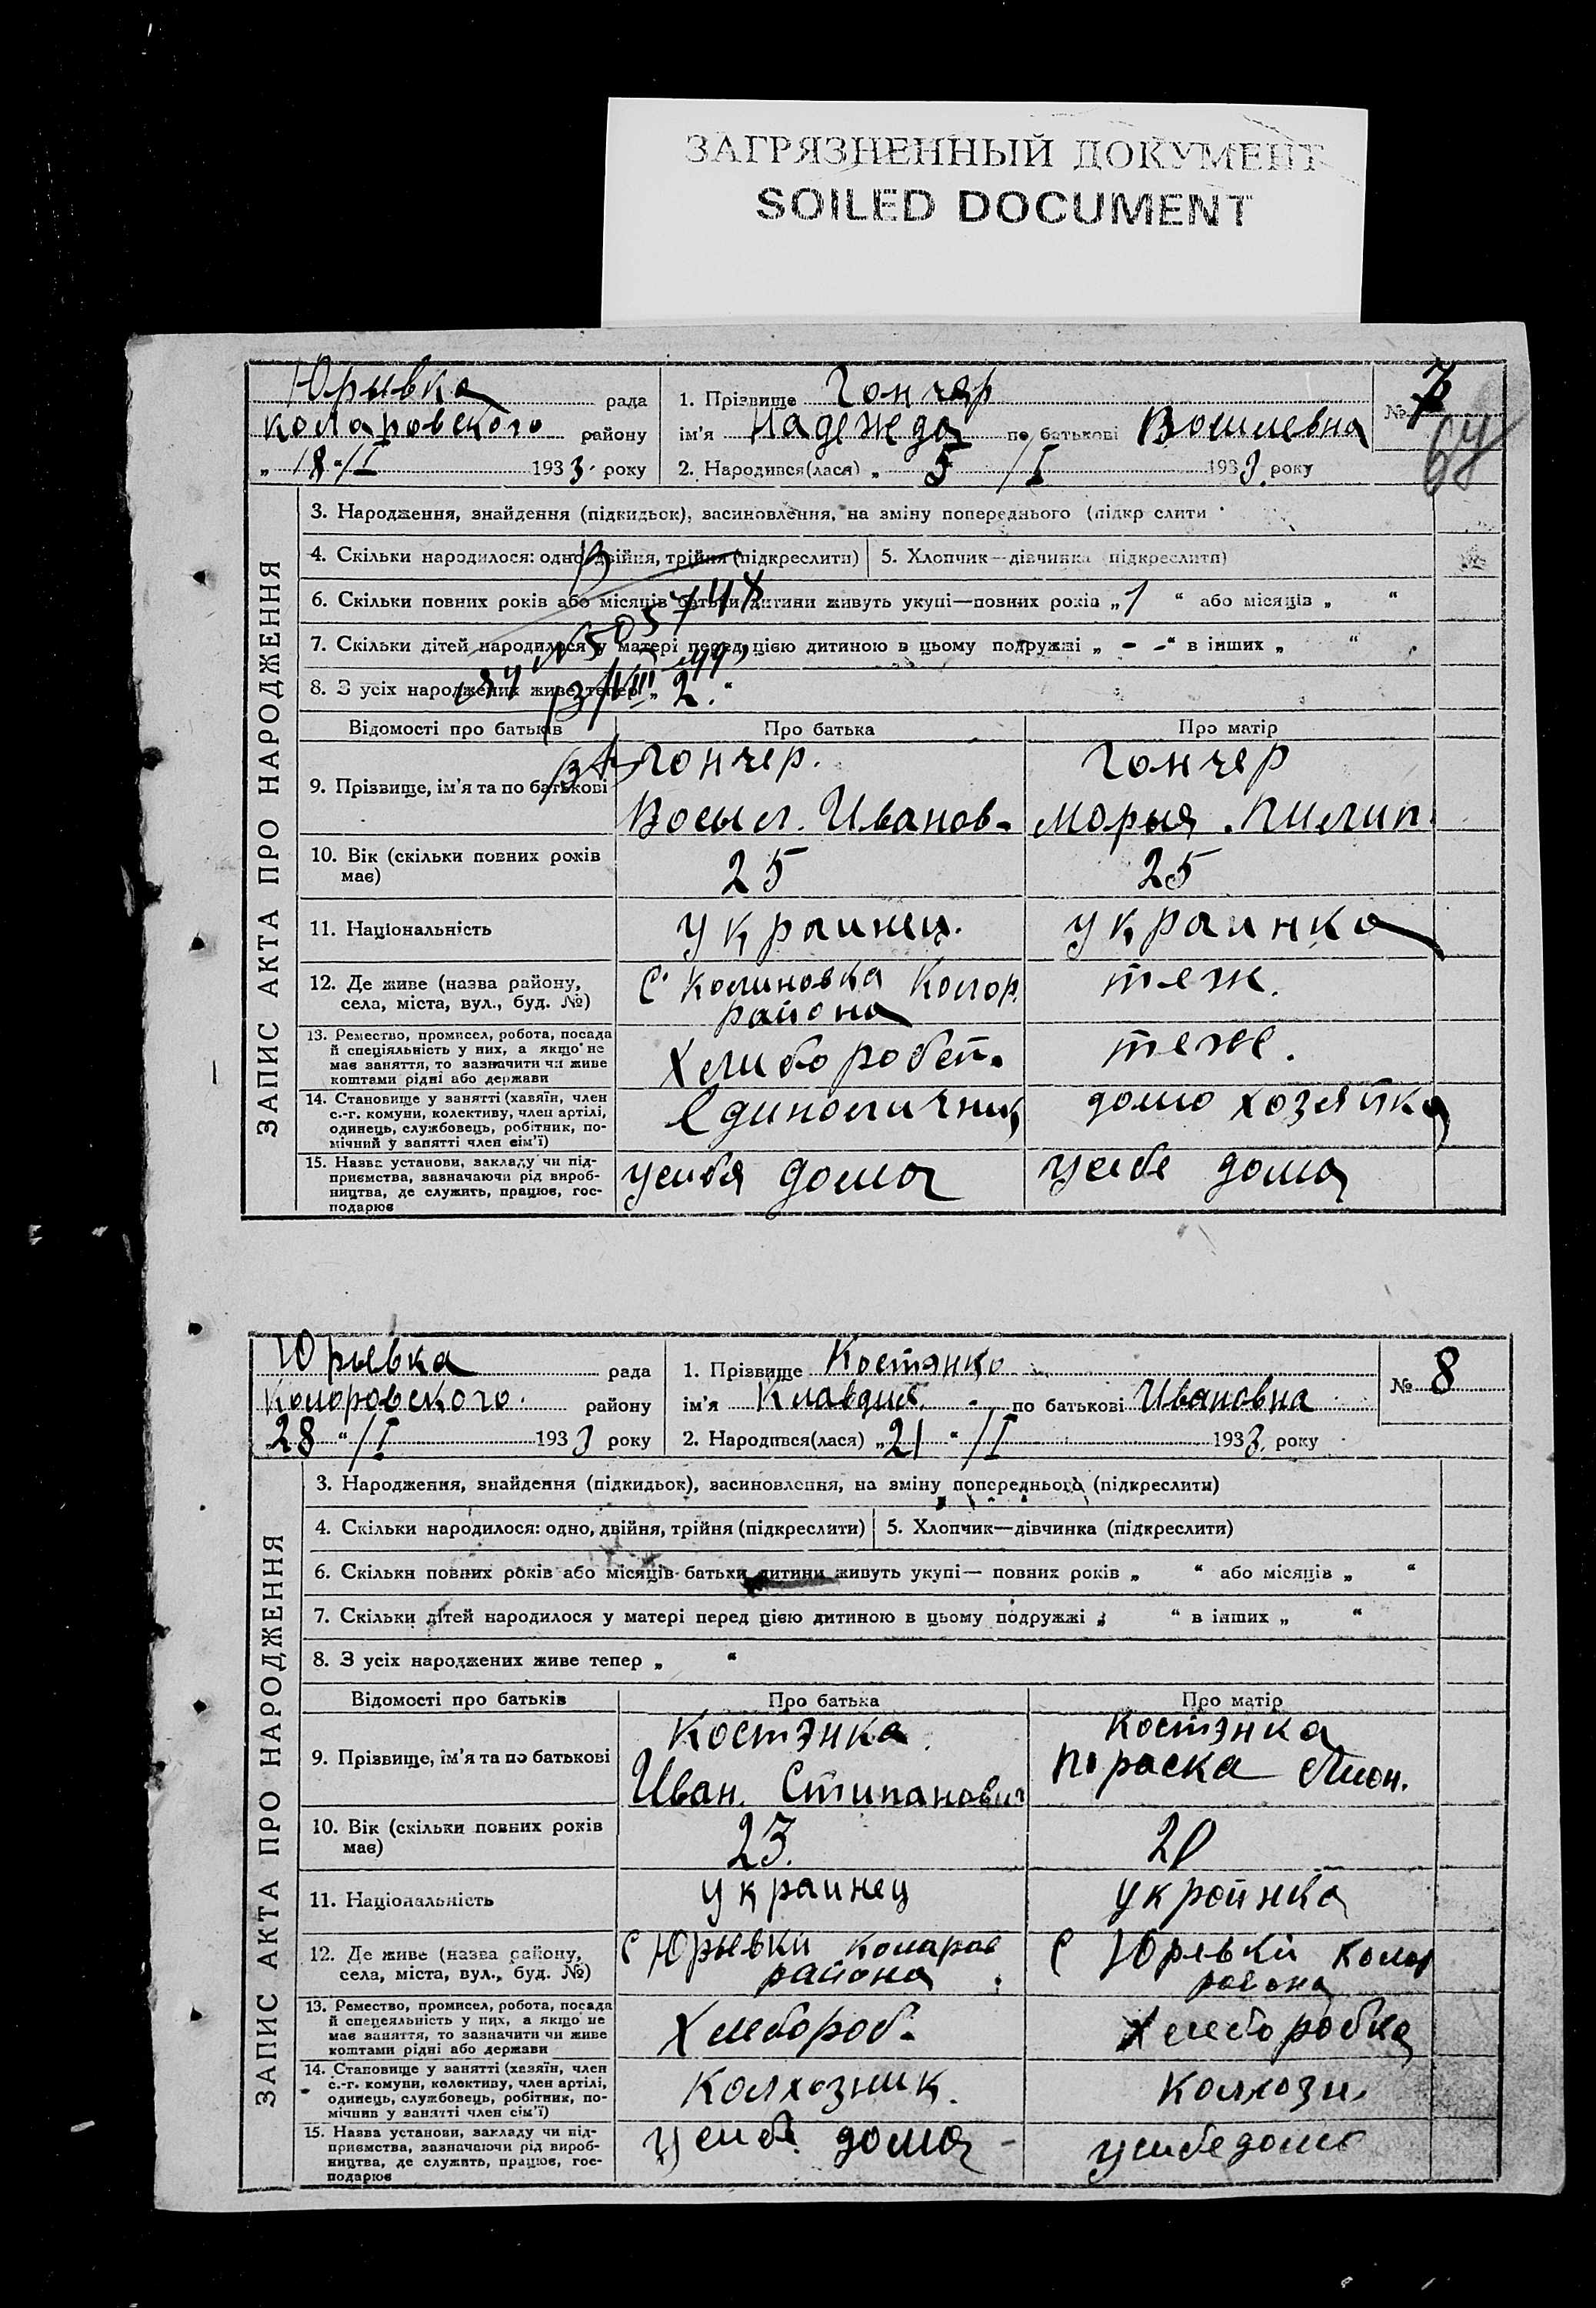 ЗАГРЯЗНЕННЫЙ ДОКУМЕНТ
SOILED DOCUMENT
Юрывка рада
1. Прізвище Гончер
№ 7
64
Коларовского району
ім'я Надежда по батькові Восилевна
„ 18 " /I 1933 року
2. Народився(лася) „ 5 /I 1933 року
ЗАПИС АКТА ПРО НАРОДЖЕННЯ
3. Народження, знайдення (підкидьок), васиновлення, на зміну попереднього (підкр слити
4. Скільки народилося: одно, двійня, трійня (підкреслити) 5. Хлопчик—дівчинка (підкреслити)
6. Скільки повних років або місяців батьки дитини живуть укупі—повних років „ 1 “ або місяців „ “
7. Скільки дітей народилося у матері перед цією дитиною в цьому подружжі „ - - “ в інших „ “
8. З усіх народжених живе тепер „ 2. “
Відомості про батьків Про батька Про матір
9. Прізвище, ім'я та по батькові
Гончер. Гончер
Восыл. Иванов- Марыя. Пилип.
10. Вік (скільки повних років має)
25 25
11. Національність
украинец. украинка
12. Де живе (назва району, села, міста, вул., буд. №)
С Колиновка Колор. района
теж.
13. Ремество, промисел, робота, посада й спеціяльність у них, а якщо не має заняття, то зазначити чи живе коштами рідні або держави
Хлибороб
теже.
14. Становище у занятті (хазяїн, член с.-г. комуни, колективу, член артілі, одинець, службовець, робітник, помічний у занятті член сім'ї)
Единоличник домо хозяйка
15. Назва установи, закладу чи підприємства, зазначаючи рід виробництва, де служить, працює, господарює
усибя дома усебе дома
Юрывка рада
1. Прізвище Костэнко
№ 8
Колоровского району
ім'я Клавдия по батькові Ивановна
„28 “ /I 1933 року
2. Народився(лася) „21 “ /I 1933. року
ЗАПИС АКТА ПРО НАРОДЖЕННЯ
3. Народження, знайдення (підкидьок), васиновлення, на зміну попереднього (підкреслити)
4. Скільки народилося: одно, двійня, трійня (підкреслити) 5. Хлопчик—дівчинка (підкреслити)
6. Скільки повних років або місяців батьки дитини живуть укупі— повних років „ “ або місяців „ “
7. Скільки дітей народилося у матері перед цією дитиною в цьому подружжі „ “ в інших „ “
8. З усіх народжених живе тепер „ “
Відомості про батьків Про батька Про матір
9. Прізвище, ім'я та по батькові
Костэнка Костэнка
Иван. Стипанович Параска
10. Вік (скільки повних років має)
23. 20
11. Національність
украинец укроинка
12. Де живе (назва району, села, міста, вул., буд. №)
С Юрывки Коларов района
С Юревки Колор района
13. Ремество, промисел, робота, посада й спецеяльність у них, а якщо не має заняття, то зазначити чи живе коштами рідні або держави
Хлебороб. Хлеборобка
14. Становище у занятті (хазяїн, член с.-г. комуни, колективу, член артілі, одинець, службовець, робітник, помічнив у занятті член сім'ї)
Колхозник. Колхозн.
15. Назва установи, закладу чи підприємства, зазначаючи рід виробництва, де служить, працює, господарює
усибе дома - усибе дома